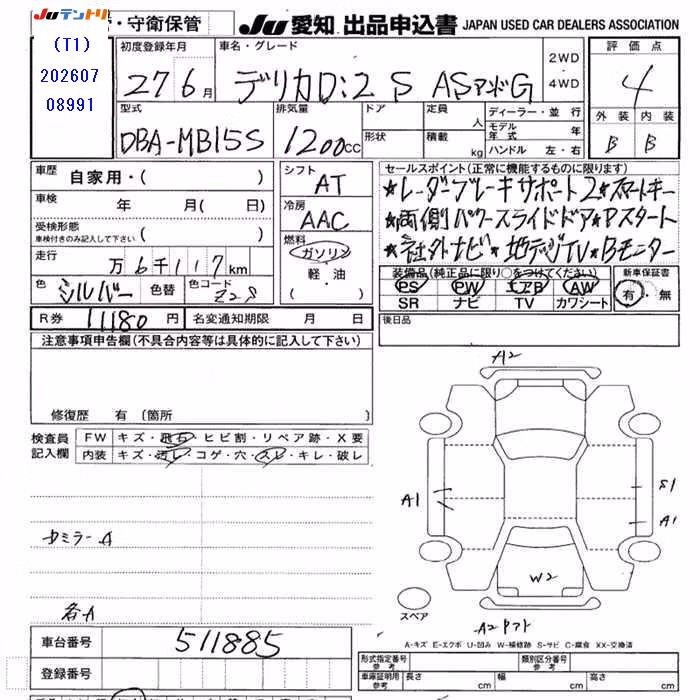 Juテントリ
(T1)
202607
08991
・守衛保管
JU 愛知 出品申込書 JAPAN USED CAR DEALERS ASSOCIATION
初度登録年月
27年6月
車名・グレード
デリカD:2 S ASアンドG
2WD
4WD
評価点
4
外装 内装
B B
型式
DBA-MB15S
排気量
1200cc
ドア
形状
定員 人
積載 kg
ディーラー・並行
モデル年式 年
ハンドル 左・右
車歴
自家用・( )
車検 年 月( 日)
受検形態
車検付きのみ記入して下さい ( )
走行 万6千117km
色 シルバー 色替 色コード Z2S
シフト
AT
冷房
AAC
燃料
ガソリン
軽・油
・( )
セールスポイント(正常に機能するものに限ります)
★レーダーブレーキサポート2★スマートキー
★両側パワースライドドア★Pスタート
★社外ナビ★地デジTV★Bモニター
装備品(純正品に限り○をつけてください)
PS PW エアB AW
SR ナビ TV カワシート
新車保証書
有・無
R券 11180円 名変通知期限 月 日
後日品
注意事項申告欄(不具合内容等は具体的に記入して下さい)
修復歴 有(箇所
検査員
記入欄
FW キズ・飛石・ヒビ割・リペア跡・X要
内装 キズ・汚レ・コゲ・穴・スレ・キレ・破レ
カミラーA
各A
A2
A1
S1
A1
W2
スペア
A2リフト
A-キズ E-エクボ U-凹み W-補修跡 S-サビ C-腐食 XX-交換済
車台番号 511885
登録番号
形式指定番号
参考
類別区分番号
参考
車庫証明用
参考
長さ cm 幅 cm 高さ cm